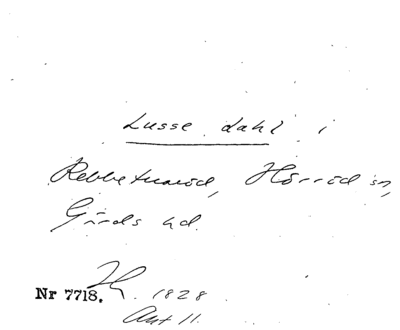 Lusse dahl i
Rebbetuaröd, Hörröd sn,
Gärds hd.
Nr 7718. 1828
Avt 11.